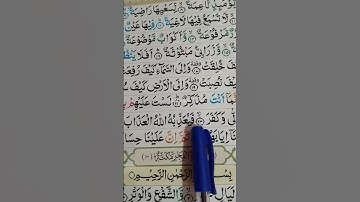 يَوْمَئِذٍ نَّاعِمَةٌ لِّسَعْيِهَا رَاضِيَةٌ
لَّا تَسْمَعُ فِيهَا لَاغِيَةً فِيهَا عَيْنٌ
مَّرْفُوعَةٌ وَّأَكْوَابٌ مَّوْضُوعَةٌ
وَّزَرَابِيُّ مَبْثُوثَةٌ أَفَلَا
وَإِلَى السَّمَاءِ كَيْفَ
كَيْفَ نُصِبَتْ وَإِلَى الْأَرْضِ كَيْفَ
أَنْتَ مُذَكِّرٌ لَسْتَ عَلَيْهِمْ
وَكَفَرَ فَيُعَذِّبُهُ اللّٰهُ الْعَذَابَ
إِنَّ عَلَيْنَا
الْفَجْرِ مَكِّيَّةٌ
الرَّحْمٰنِ الرَّحِيمِ
وَّالشَّفْعِ وَالْوَتْرِ